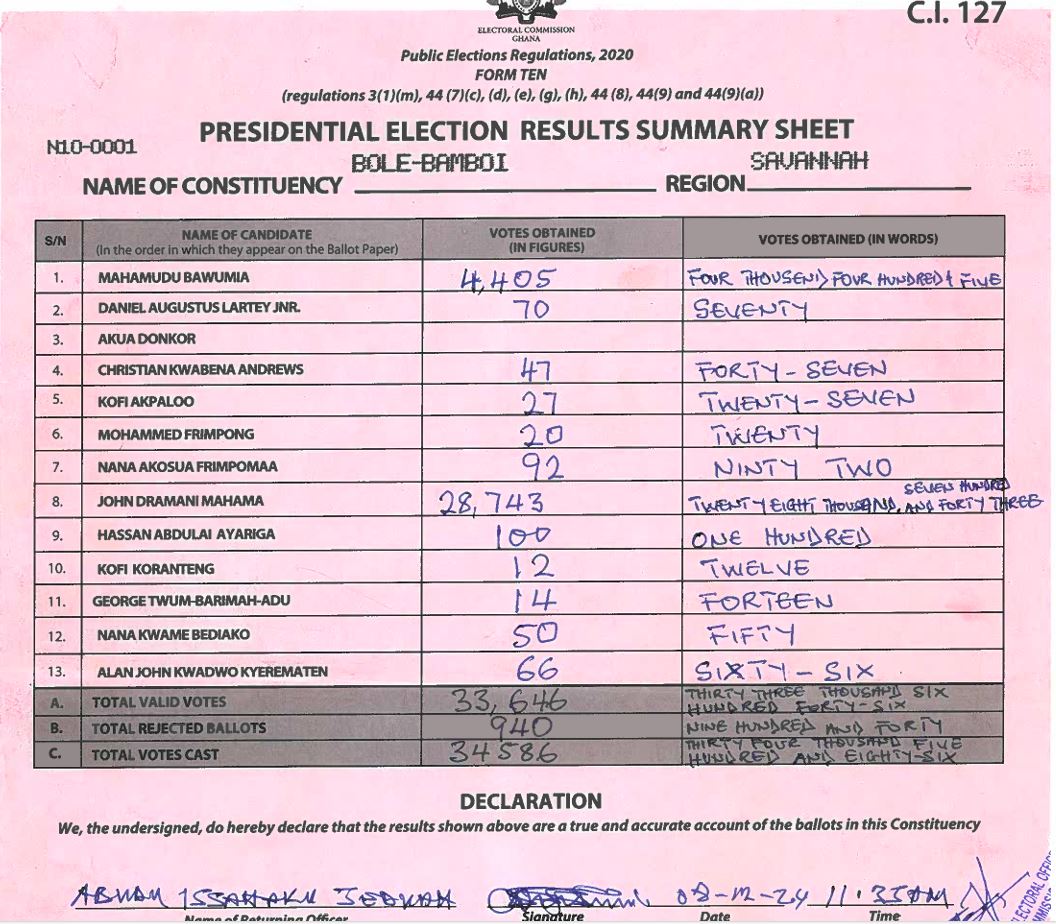 C.I. 127
ELECTORAL COMMISSION
GHANA
Public Elections Regulations, 2020
FORM TEN
(regulations 3(1)(m), 44 (7)(c), (d), (e), (g), (h), 44 (8), 44(9) and 44(9)(a))
PRESIDENTIAL ELECTION RESULTS SUMMARY SHEET
N10-0001
NAME OF CONSTITUENCY BOLE-BAMBOI REGION SAVANNAH
S/N NAME OF CANDIDATE (In the order in which they appear on the Ballot Paper) VOTES OBTAINED (IN FIGURES) VOTES OBTAINED (IN WORDS)
1. MAHAMUDU BAWUMIA 4,405 FOUR THOUSEND FOUR HUNDRED & FIVE
2. DANIEL AUGUSTUS LARTEY JNR. 70 SEVENTY
3. AKUA DONKOR
4. CHRISTIAN KWABENA ANDREWS 47 FORTY-SEVEN
5. KOFI AKPALOO 27 TWENTY-SEVEN
6. MOHAMMED FRIMPONG 20 TWENTY
7. NANA AKOSUA FRIMPOMAA 92 NINTY TWO
8. JOHN DRAMANI MAHAMA 28,743 TWENTY EIGHT THOUSAND, SEVEN HUNDRED AND FORTY THREE
9. HASSAN ABDULAI AYARIGA 100 ONE HUNDRED
10. KOFI KORANTENG 12 TWELVE
11. GEORGE TWUM-BARIMAH-ADU 14 FORTEEN
12. NANA KWAME BEDIAKO 50 FIFTY
13. ALAN JOHN KWADWO KYEREMATEN 66 SIXTY-SIX
A. TOTAL VALID VOTES 33,646 THIRTY THREE THOUSAND SIX HUNDRED FORTY-SIX
B. TOTAL REJECTED BALLOTS 940 NINE HUNDRED AND FORTY
C. TOTAL VOTES CAST 34586 THIRTY FOUR THOUSAND FIVE HUNDRED AND EIGHTY-SIX
DECLARATION
We, the undersigned, do hereby declare that the results shown above are a true and accurate account of the ballots in this Constituency
ISSAHAKU 08-12-24 11:35AM
Name of Returning Officer Signature Date Time
ELECTORAL